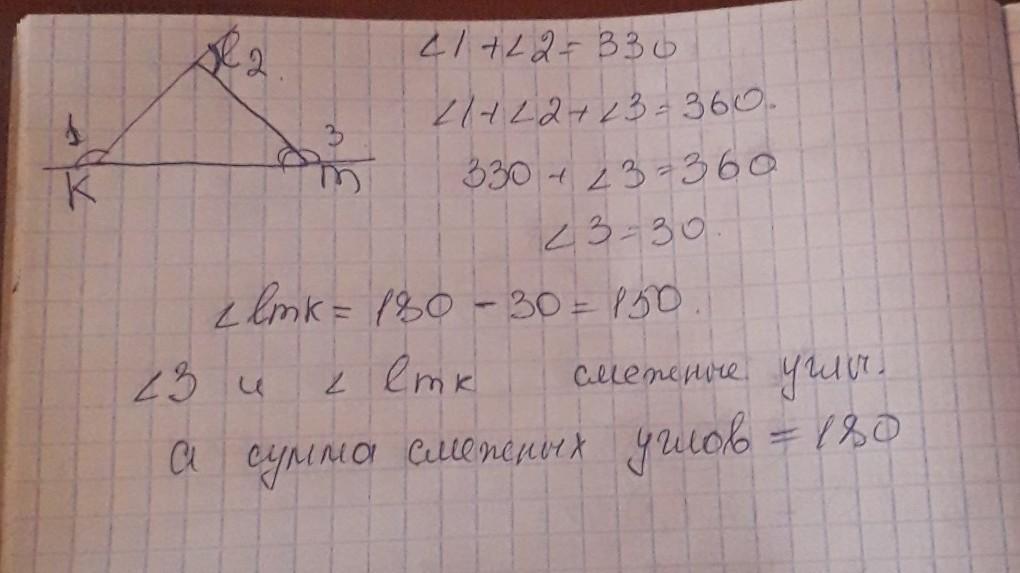 ∠1 + ∠2 = 330
∠1 + ∠2 + ∠3 = 360.
330 + ∠3 = 360
∠3 = 30.
1
l 2.
3
K
m
∠ lmk = 180 - 30 = 150.
∠3 и ∠ lmk смежные углы.
а сумма смежных углов = 180